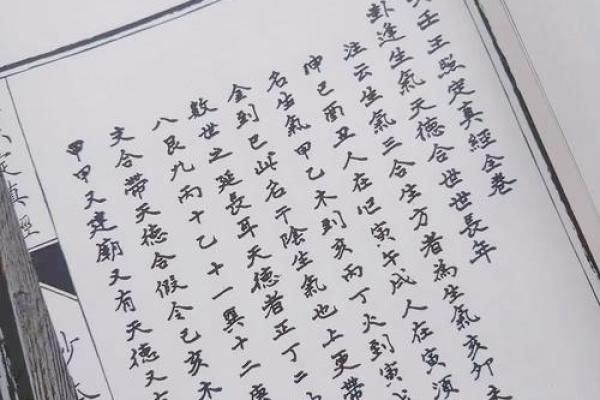 壬王照定真經全卷
卦逢生氣天德合世世長年
注云生氣三合生方者為生氣亥卯未
申巳酉丑人在巳寅午戌人在寅須
名生氣甲乙木到亥丙丁火到寅戊
金到巳此名干陰生氣也上更帶
数世之延長耳天德者正丁二
八艮九丙十乙十一巽十二庚
文合帶天德合假令己亥木
甲甲又建廟又有天德又
定真經